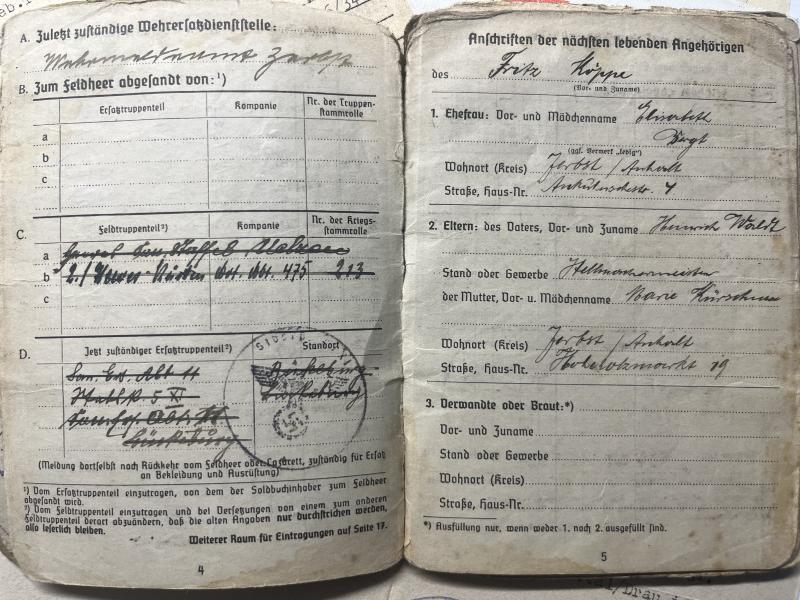 A. Zuletzt zuständige Wehrersatzdienststelle:
Wehrmeldeamt Zerbst
B. Zum Feldheer abgesandt von:¹)
Ersatztruppenteil Kompanie Nr. der Truppenstammrolle
a
b
c
C. Feldtruppenteil²) Kompanie Nr. der Kriegsstammrolle
a
b 2./ 475 213
c
D. Jetzt zuständiger Ersatztruppenteil²) Standort
San. Ers. Abt 11 Bückeburg
XI
Bückeburg
Bückeburg
(Meldung dortselbst nach Rückkehr vom Feldheer oder Lazarett, zuständig für Ersatz
an Bekleidung und Ausrüstung)
¹) Vom Ersatztruppenteil einzutragen, von dem der Soldbuchinhaber zum Feldheer
abgesandt wird.
²) Vom Feldtruppenteil einzutragen und bei Versetzungen von einem zum anderen
Feldtruppenteil derart abzuändern, daß die alten Angaben nur durchstrichen werden,
also leserlich bleiben.
Weiterer Raum für Eintragungen auf Seite 17.
4
Anschriften der nächsten lebenden Angehörigen
des Fritz Köppe
(Vor- und Zuname)
1. Ehefrau: Vor- und Mädchenname Elisabeth
(ggf. Vermerk „ledig")
Wohnort (Kreis) Zerbst / Anhalt
Straße, Haus-Nr. 4
2. Eltern: des Vaters, Vor- und Zuname Heinrich
Stand oder Gewerbe Stellmachermeister
der Mutter, Vor- u. Mädchenname Marie
Wohnort (Kreis) Zerbst / Anhalt
Straße, Haus-Nr. 19
3. Verwandte oder Braut:*)
Vor- und Zuname
Stand oder Gewerbe
Wohnort (Kreis)
Straße, Haus-Nr.
*) Ausfüllung nur, wenn weder 1. noch 2. ausgefüllt sind.
5